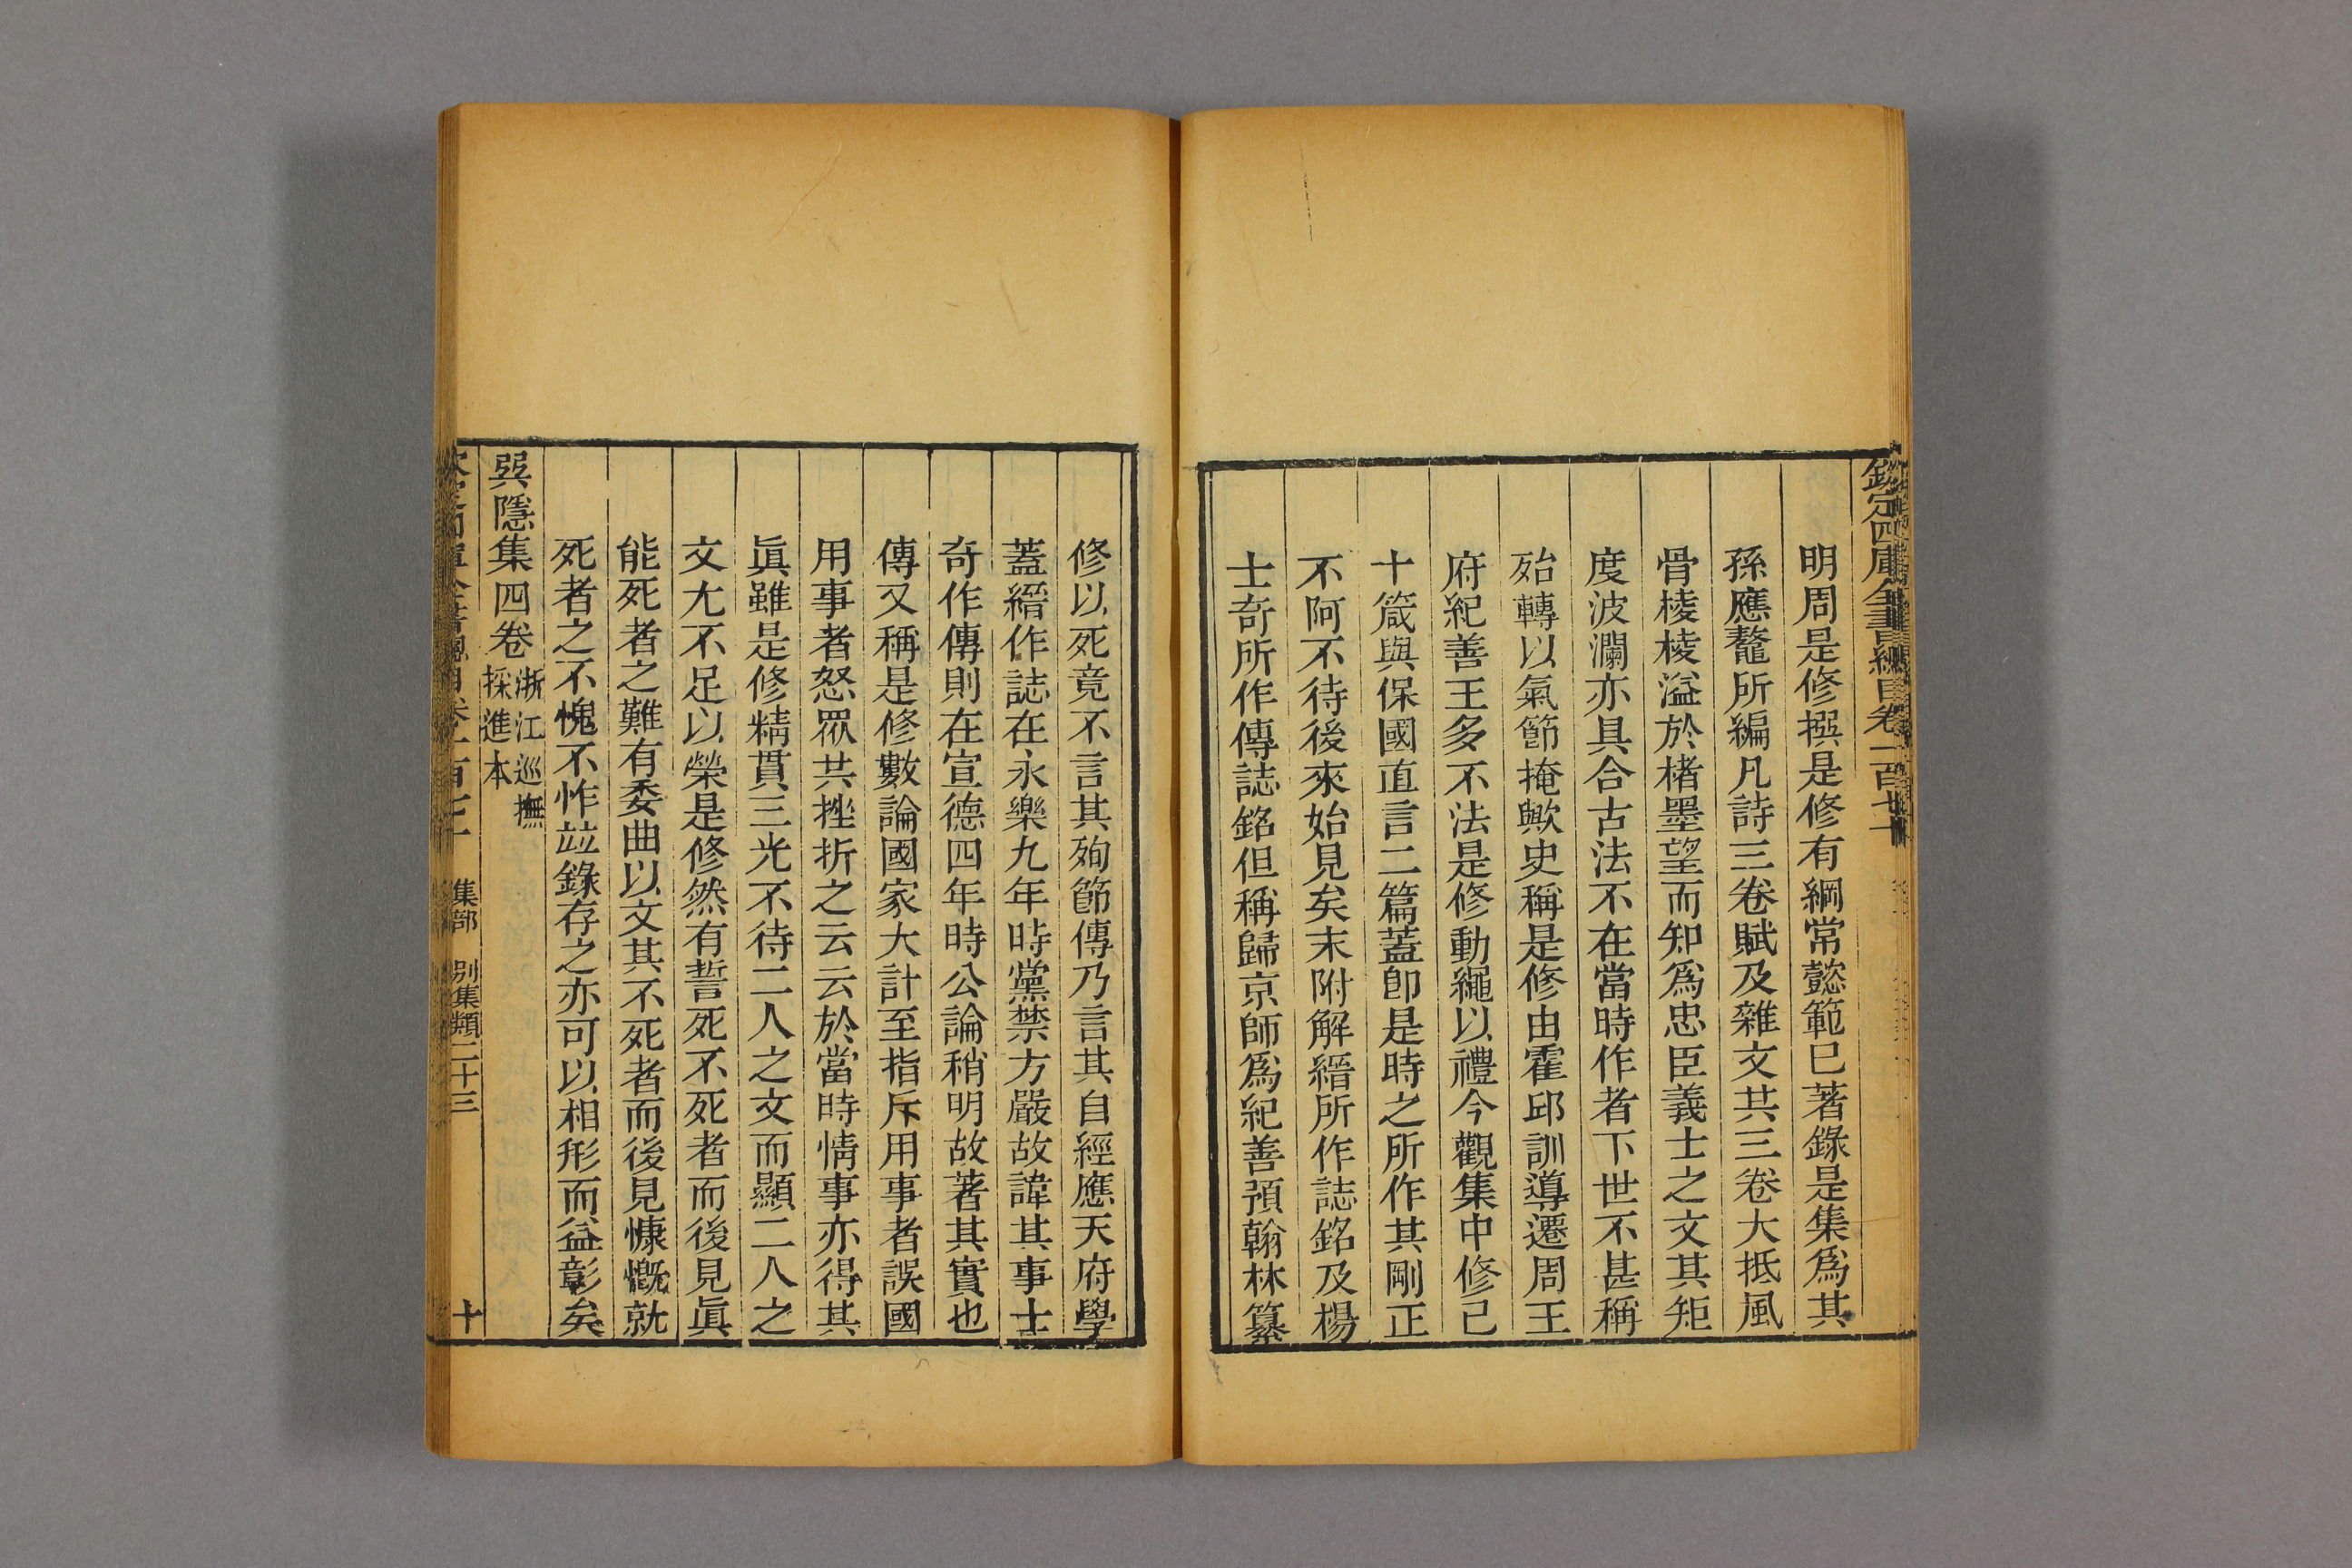 欽定四庫全書總目卷一百七十
明周是修撰是修有綱常懿範已著錄是集爲其
孫應鼇所編凡詩三卷賦及雜文共三卷大抵風
骨棱棱溢於楮墨望而知爲忠臣義士之文其矩
度波瀾亦具合古法不在當時作者下世不甚稱
殆轉以氣節掩歟史稱是修由霍邱訓導遷周王
府紀善王多不法是修動繩以禮今觀集中修己
十箴與保國直言二篇蓋卽是時之所作其剛正
不阿不待後來始見矣末附解縉所作誌銘及楊
士奇所作傳誌銘但稱歸京師爲紀善預翰林纂
修以死竟不言其殉節傳乃言其自經應天府學
蓋縉作誌在永樂九年時黨禁方嚴故諱其事士
奇作傳則在宣德四年時公論稍明故著其實也
傳又稱是修數論國家大計至指斥用事者誤國
用事者怒眾共挫折之云云於當時情事亦得其
眞雖是修精貫三光不待二人之文而顯二人之
文尤不足以榮是修然有誓死不死者而後見眞
能死者之難有委曲以文其不死者而後見慷慨就
死者之不愧不怍竝錄存之亦可以相形而益彰矣
巽隱集四卷浙江巡撫
採進本
集部 別集類二十三 十